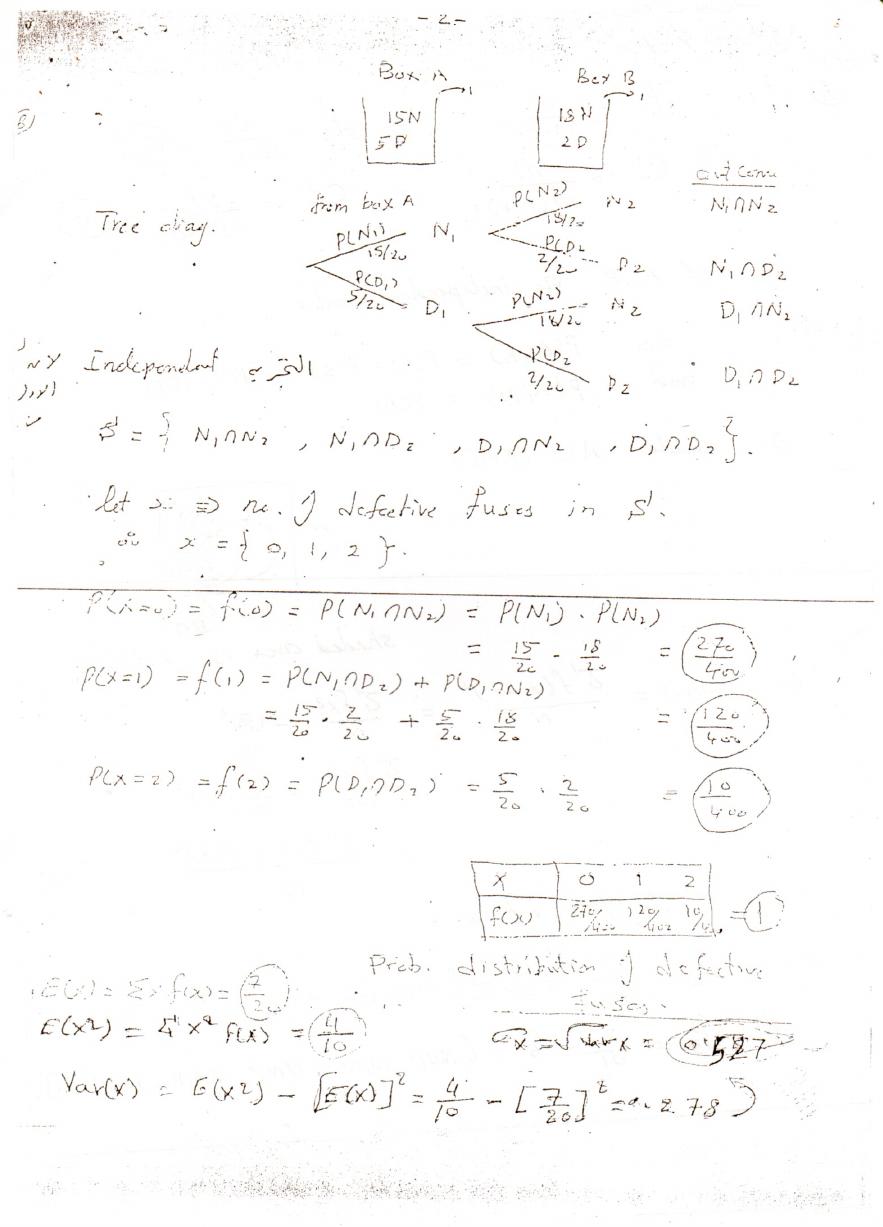 - 2 -
Box A
Box B
15N
5D
18N
2D
out come
Tree diag.
from box A
P(N1)
15/20
N1
P(D1)
5/20
D1
P(N2)
18/20
N2
N1∩N2
P(D2
2/20
D2
N1∩D2
P(N2)
18/20
N2
D1∩N2
P(D2
2/20
D2
D1∩D2
Independent
S = { N1∩N2 , N1∩D2 , D1∩N2 , D1∩D2 }.
let x ⇒ no. of defective fuses in S.
∴ x = { 0, 1, 2 }.
P(x=0) = f(0) = P(N1∩N2) = P(N1) . P(N2)
= 15/20 . 18/20 = 270/400
P(x=1) = f(1) = P(N1∩D2) + P(D1∩N2)
= 15/20 . 2/20 + 5/20 . 18/20 = 120/400
P(x=2) = f(2) = P(D1∩D2) = 5/20 . 2/20 = 10/400
x 0 1 2
f(x) 270/400 120/400 10/400 = 1
Prob. distribution of defective
fuses.
E(x) = Σx f(x) = 7/20
E(x2) = Σ x2 f(x) = 4/10
σx = √var x = 0.527
Var(x) = E(x2) - [E(x)]2 = 4/10 - [7/20]2 = 0.278